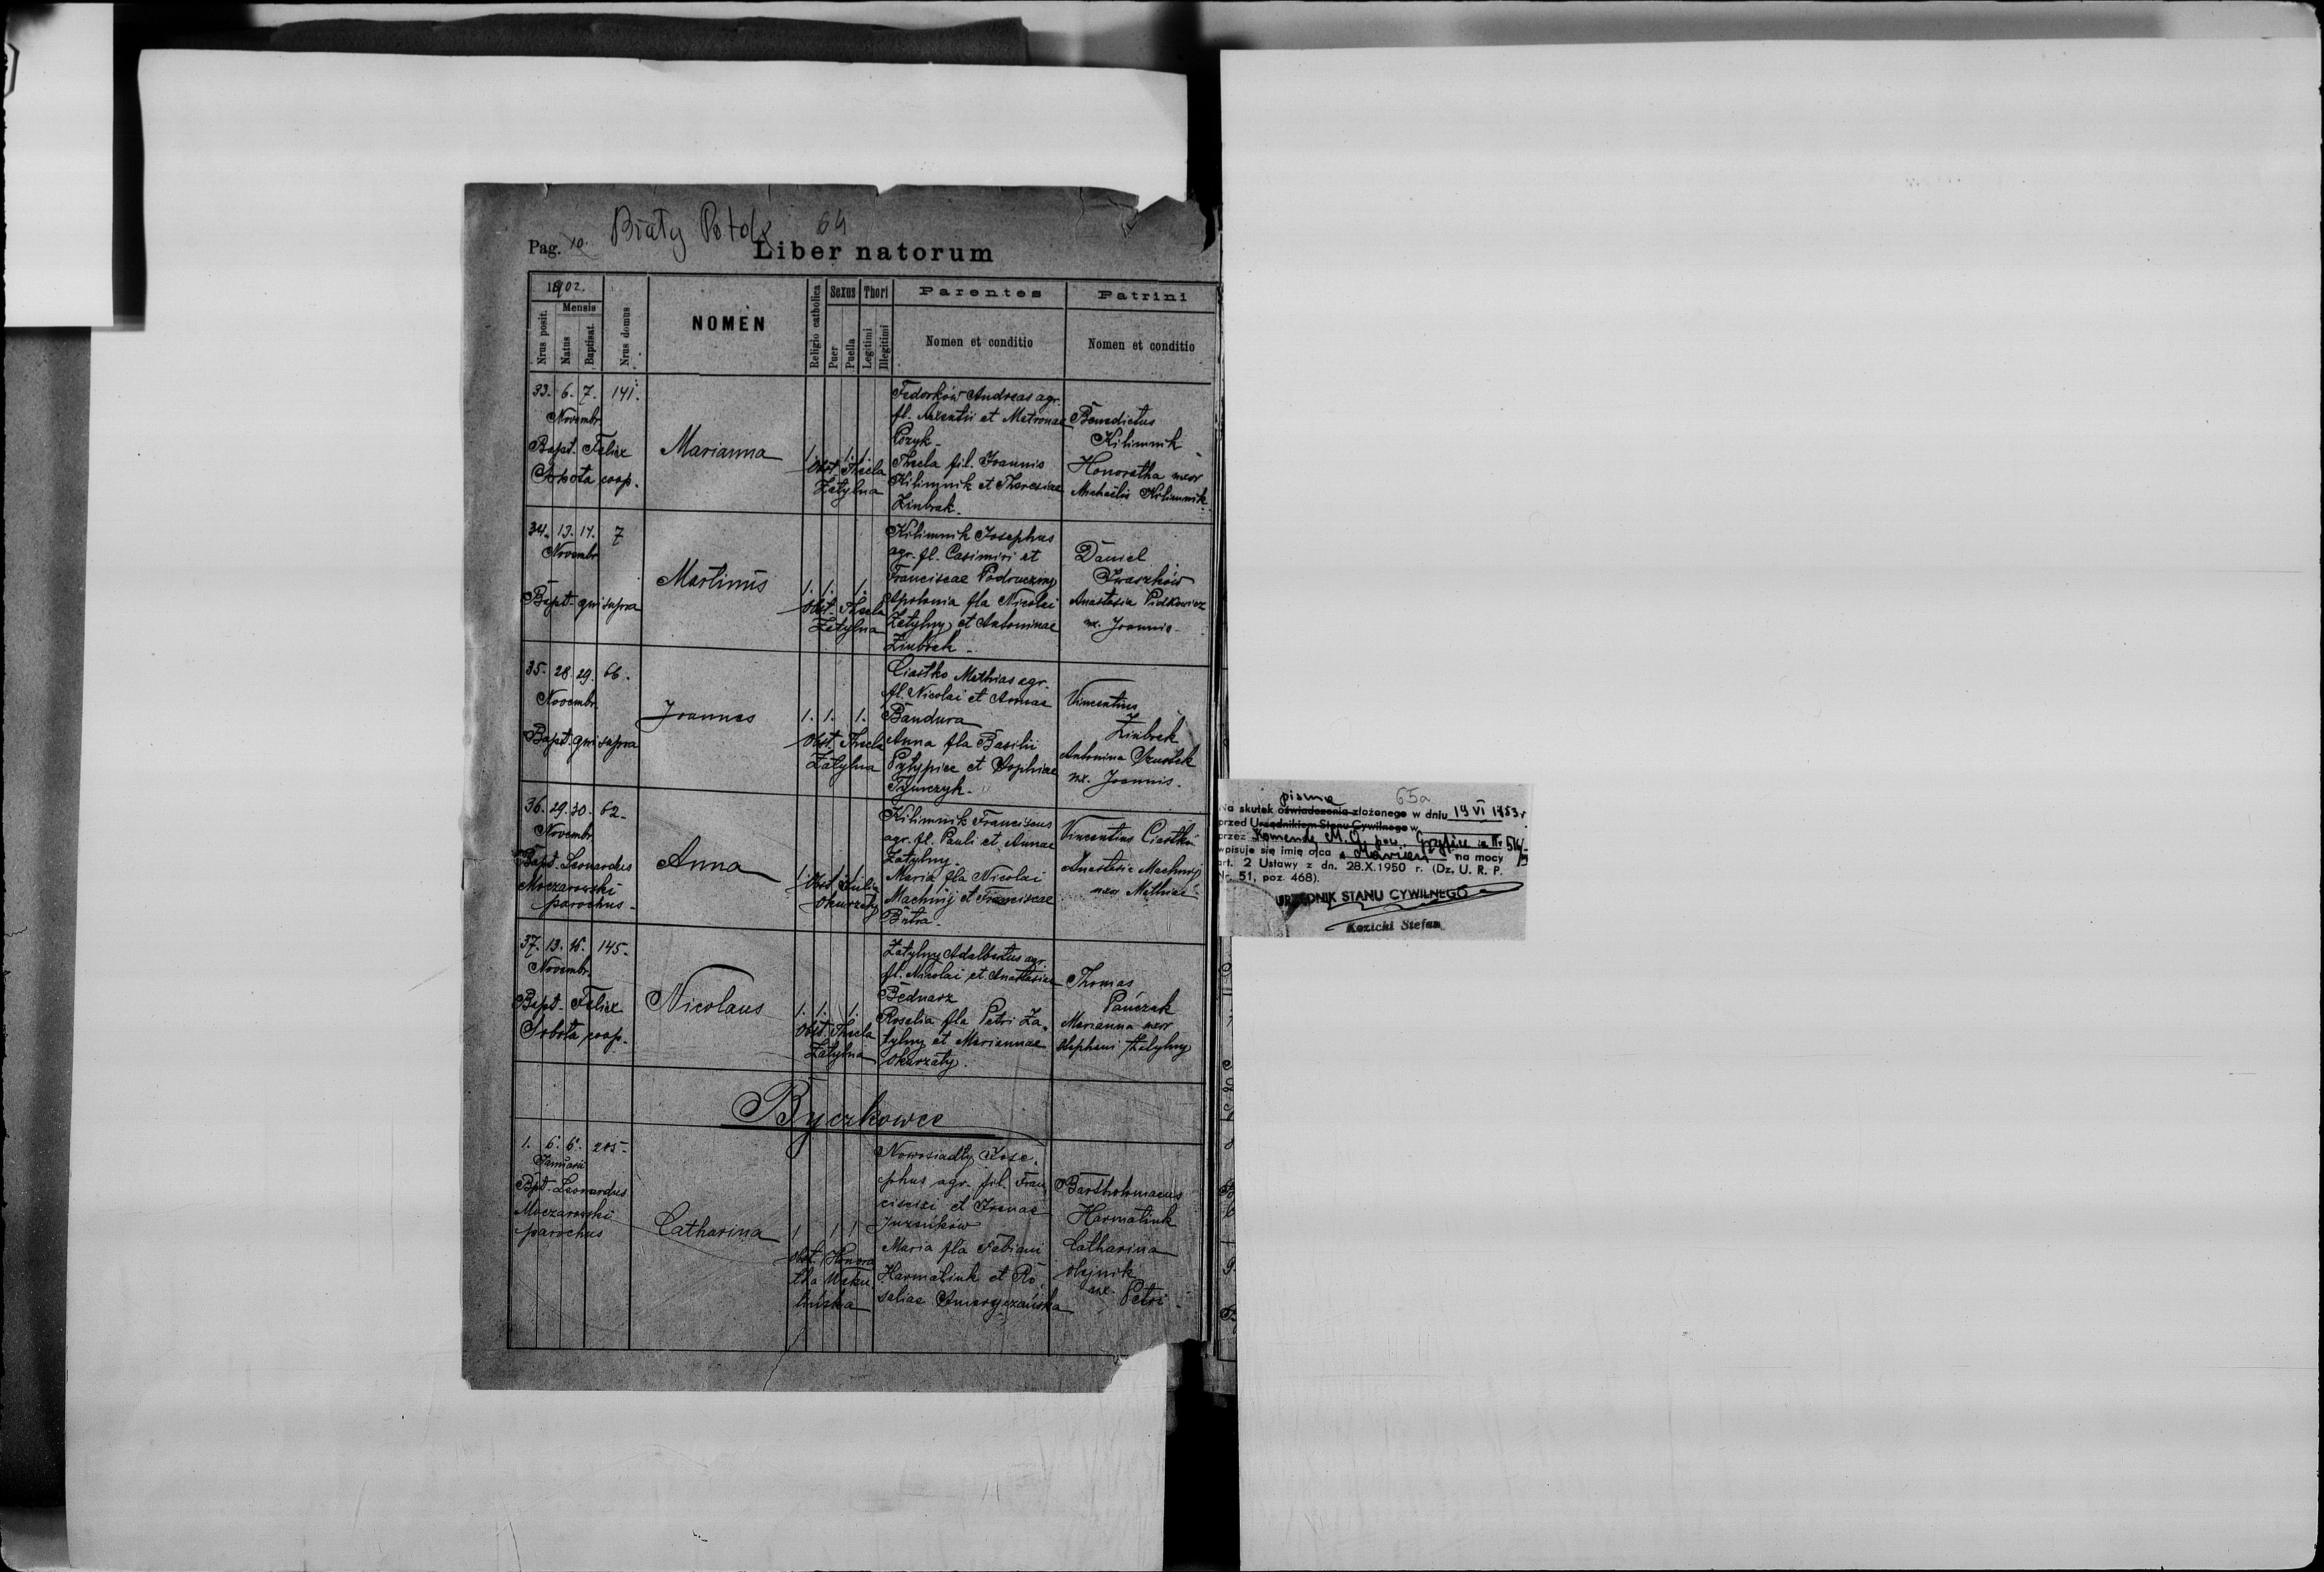 Biały Potok 64
Pag. 10.
Liber natorum
1902.
Mensis
Nrus posit.
Natus
Baptisat.
Nrus domus
NOMEN
Religio catholica
Sexus
Puer
Puella
Thori
Legitimi
Illegitimi
Parentes
Nomen et conditio
Patrini
Nomen et conditio
33. 6. 7. 141.
Novembr.
Bapt. Felix
Sobota coop.
Marianna
1. 1. 1.
Obst. Thecla
Zatylna
Fedorków Andreas agr.
fl. Arxentii et Matronae
Kozyk
Thecla fil. Joannis
Kilimnik et Theresiae
Zinbrek.
Benedictus
Kilimnik
Honoratha uxor
Michaëlis Kilimnik
34. 13. 14. 7
Novembr
Bapt. qui supra
Martinus
1. 1. 1.
Obst. Thecla
Zatylna
Kilimnik Josephus
agr. fl. Casimiri et
Franciscae Podruczny
Apolonia fla Nicolai
Zatylny et Antoninae
Zinbrek
Daniel
Iwaszków
Anastasia Pidkowicz
ux. Joannis
35. 28. 29. 66.
Novembr.
Bapt. qui supra
Joannes
1. 1. 1.
Obst. Thecla
Zatylna
Ciastko Mathias agr.
fl. Nicolai et Annae
Bandura
Anna fla Basilii
et Sophiae
Tymczyk.
Vincentius
Zinbrek
Antonina
ux. Joannis.
36. 29. 30. 62.
Novembr.
Bapt. Leonardus
Moczarowski
parochus
Anna
1. 1. 1.
Obst. Julia
Okurzaty
Kilimnik Franciscus
agr. fl. Pauli et Annae
Zatylny.
Maria fla Nicolai
Machnij et Franciscae
Butra.
Vincentius Ciastko
Anastasia Machnij
uxor Mathiae
37. 13. 15. 145.
Novembr.
Bapt. Felix
Sobota coop.
Nicolaus
1. 1. 1.
Obst. Thecla
Zatylna
Zatylny Adalbertus agr.
fl. Nicolai et Anastasiae
Bednarz
Rosalia fla Petri Za-
tylny et Mariannae
Okurzaty.
Thomas
Pańczak
Marianna uxor
Stephani Zatylny
Byczkowce
1. 6. 6. 205.
Januarii
Bpt. Leonardus
Moczarowski
parochus
Catharina
1 1 1
Obst. Honora
tha
Nowosiadły Jose-
phus agr. fil. Fran
cisci et Irenae
Juzuików
Maria fla Fabiani
Harmatiuk et Ro
saliae
Bartholomaeus
Harmatiuk
Catharina
Olejnik
ux. Petri
65a
pisma
Na skutek oświadczenia złożonego w dniu 19 VI 1953 r
przed Urzędnikiem Stanu Cywilnego w
przez Komendę M. O. pow. Gryfice za Nr 516/
wpisuje się imię ojca na mocy
art. 2 Ustawy z dn. 28.X.1950 r. (Dz. U. R. P.
Nr. 51, poz. 468).
URZĘDNIK STANU CYWILNEGO
Kozicki Stefan